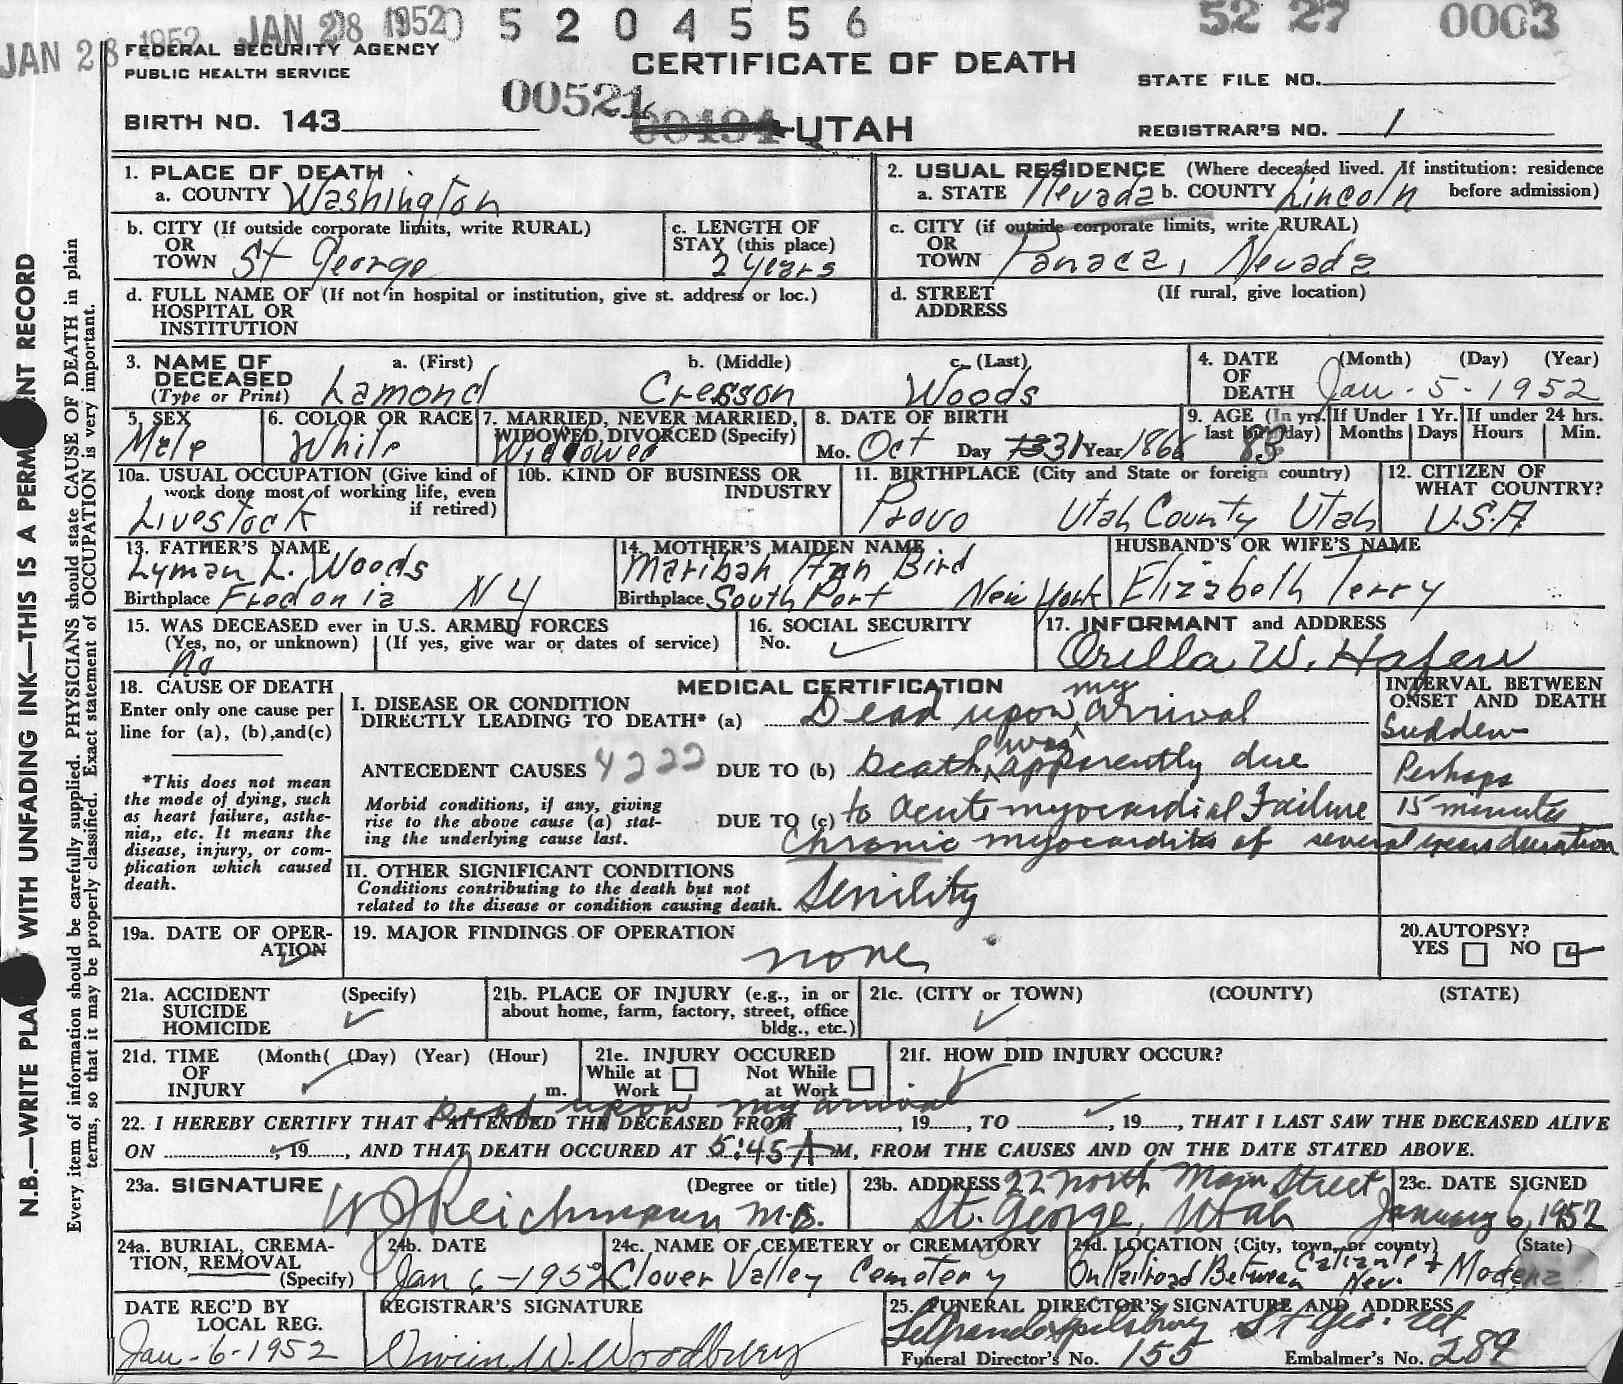 JAN 28 1952 JAN 28 1952 0 5 2 0 4 5 5 6 52 27 0003
FEDERAL SECURITY AGENCY
PUBLIC HEALTH SERVICE
CERTIFICATE OF DEATH
STATE FILE NO.
00521
BIRTH NO. 143 UTAH
REGISTRAR'S NO. 1
1. PLACE OF DEATH
a. COUNTY Washington
2. USUAL RESIDENCE (Where deceased lived. If institution: residence before admission)
a. STATE Nevada b. COUNTY Lincoln
b. CITY (If outside corporate limits, write RURAL)
OR
TOWN St George
c. LENGTH OF
STAY (this place)
2 years
c. CITY (if outside corporate limits, write RURAL)
OR
TOWN Panaca, Nevada
d. FULL NAME OF (If not in hospital or institution, give st. address or loc.)
HOSPITAL OR
INSTITUTION
d. STREET (If rural, give location)
ADDRESS
3. NAME OF a. (First) b. (Middle) c. (Last)
DECEASED
(Type or Print) Lamond Cresson Woods
4. DATE (Month) (Day) (Year)
OF
DEATH Jan - 5 - 1952
5. SEX
Male
6. COLOR OR RACE
White
7. MARRIED, NEVER MARRIED,
WIDOWED, DIVORCED (Specify)
Widowed
8. DATE OF BIRTH
Mo. Oct Day 31 Year 1866
9. AGE (In yrs. last birthday)
If Under 1 Yr. Months Days
If under 24 hrs. Hours Min.
10a. USUAL OCCUPATION (Give kind of
work done most of working life, even
if retired)
Livestock
10b. KIND OF BUSINESS OR
INDUSTRY
11. BIRTHPLACE (City and State or foreign country)
Provo Utah County Utah
12. CITIZEN OF
WHAT COUNTRY?
U.S.A
13. FATHER'S NAME
Lyman L. Woods
Birthplace Fredonia N Y
14. MOTHER'S MAIDEN NAME
Maribah Ann Bird
Birthplace South Port New York
HUSBAND'S OR WIFE'S NAME
Elizabeth Terry
15. WAS DECEASED ever in U.S. ARMED FORCES
(Yes, no, or unknown) (If yes, give war or dates of service)
No
16. SOCIAL SECURITY
No.
17. INFORMANT and ADDRESS
Orilla W. Hafen
18. CAUSE OF DEATH
Enter only one cause per
line for (a), (b), and (c)
*This does not mean
the mode of dying, such
as heart failure, asthe-
nia,, etc. It means the
disease, injury, or com-
plication which caused
death.
MEDICAL CERTIFICATION
I. DISEASE OR CONDITION
DIRECTLY LEADING TO DEATH* (a) Dead upon my arrival
ANTECEDENT CAUSES 4222 DUE TO (b) Death was apparently due
Morbid conditions, if any, giving
rise to the above cause (a) stat-
ing the underlying cause last.
DUE TO (c) to acute myocardial Failure
Chronic myocarditis of several years duration
INTERVAL BETWEEN
ONSET AND DEATH
Sudden
Perhaps
15 minutes
II. OTHER SIGNIFICANT CONDITIONS
Conditions contributing to the death but not
related to the disease or condition causing death.
Senility
19a. DATE OF OPER-
ATION
19. MAJOR FINDINGS OF OPERATION
none
20. AUTOPSY?
YES NO
21a. ACCIDENT (Specify)
SUICIDE
HOMICIDE
21b. PLACE OF INJURY (e.g., in or
about home, farm, factory, street, office
bldg., etc.)
21c. (CITY or TOWN) (COUNTY) (STATE)
21d. TIME (Month( (Day) (Year) (Hour)
OF
INJURY m.
21e. INJURY OCCURED
While at Work Not While at Work
21f. HOW DID INJURY OCCUR?
Dead upon my arrival
22. I HEREBY CERTIFY THAT I ATTENDED THE DECEASED FROM , 19 , TO , 19 , THAT I LAST SAW THE DECEASED ALIVE
ON , 19 , AND THAT DEATH OCCURED AT 5:45 A M, FROM THE CAUSES AND ON THE DATE STATED ABOVE.
23a. SIGNATURE (Degree or title)
W J Reichmann M.D.
23b. ADDRESS 22 North Main Street
St. George, Utah
23c. DATE SIGNED
January 6, 1952
24a. BURIAL, CREMA-
TION, REMOVAL
(Specify)
24b. DATE
Jan 6 - 1952
24c. NAME OF CEMETERY or CREMATORY
Clover Valley Cemetery
24d. LOCATION (City, town, or county) (State)
On Railroad Between Caliente Nev. + Modena
DATE REC'D BY
LOCAL REG.
Jan - 6 - 1952
REGISTRAR'S SIGNATURE
Vivien W. Woodbury
25. FUNERAL DIRECTOR'S SIGNATURE AND ADDRESS
Spilsbury St Geo. Ut
Funeral Director's No. 155 Embalmer's No. 284
N.B.—WRITE PLAI WITH UNFADING INK—THIS IS A PERM ENT RECORD
Every item of information should be carefully supplied. PHYSICIANS should state CAUSE OF DEATH in plain
terms, so that it may be properly classified. Exact statement of OCCUPATION is very important.